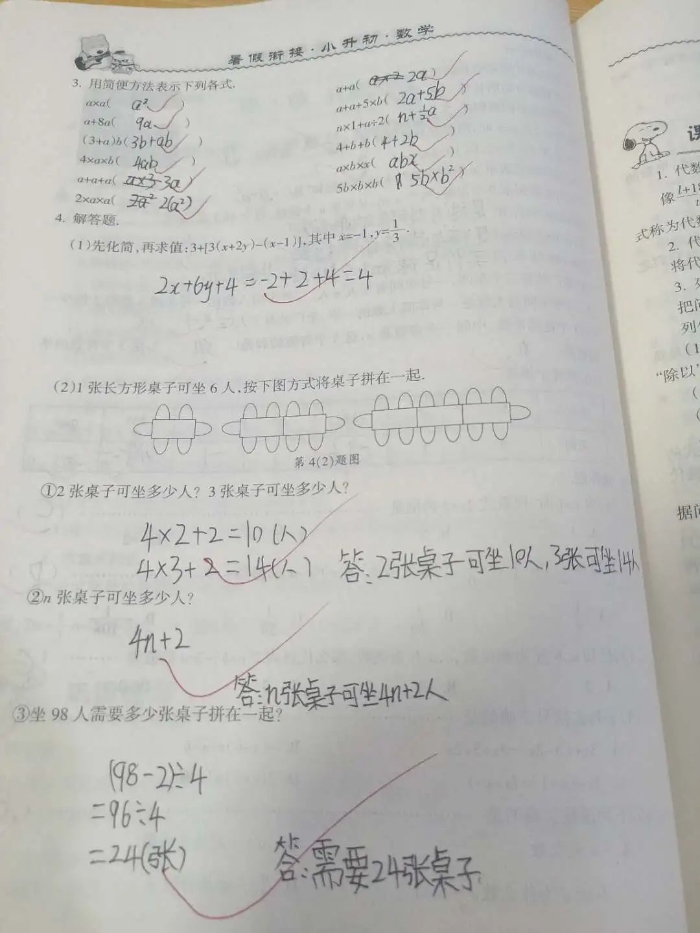 暑假衔接·小升初·数学
3. 用简便方法表示下列各式.
a×a( a² )
a+8a( 9a )
(3+a)b( 3b+ab )
4×a×b( 4ab )
a+a+a( 3a )
2×a×a( 2(a²) )
a+a( 2a )
a+a+5×b( 2a+5b )
n×1+a÷2( n+½a )
4+b+b( 4+2b )
a×b×x( abx )
5b×b×b( 5b×b² )
4. 解答题.
(1)先化简,再求值:3+[3(x+2y)-(x-1)],其中x=-1,y=1/3.
2x+6y+4=-2+2+4=4
(2)1张长方形桌子可坐6人,按下图方式将桌子拼在一起.
第4(2)题图
①2张桌子可坐多少人? 3张桌子可坐多少人?
4×2+2=10(人)
4×3+2=14(人) 答:2张桌子可坐10人,3张可坐14人
②n张桌子可坐多少人?
4n+2
答:n张桌子可坐4n+2人
③坐98人需要多少张桌子拼在一起?
(98-2)÷4
=96÷4
=24(张)
答:需要24张桌子
课
1. 代数
像
式称为代数
2. 代
将代
3. 列
把问
列
(1
"除以"
(
(
据问